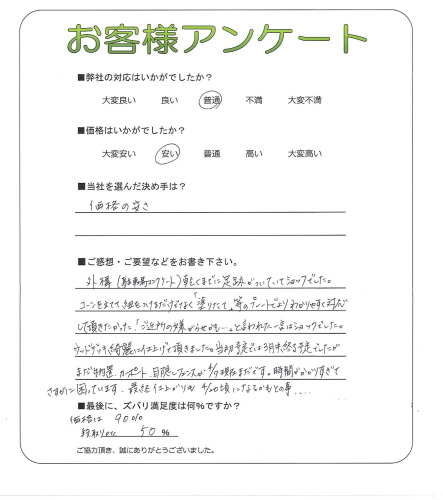 お客様アンケート
■弊社の対応はいかがでしたか？
大変良い 良い 普通 不満 大変不満
■価格はいかがでしたか？
大変安い 安い 普通 高い 大変高い
■当社を選んだ決め手は？
価格の安さ
■ご感想・ご要望などをお書き下さい。
外構（駐車場コンクリート）乾くまでに足跡がついていてショックでした。
コーンを立てて紐をつけるだけでなく「塗りたて」等のプレートでよりわかりやすく対応
して頂きたかった！「ご近所の嫌がらせかも…」と言われた一言はショックでした。
ウッドデッキ綺麗に仕上げて頂きました。当初予定では3月中終了予定でしたが
まだ物置、カーポート、目隠しフェンスが4/7現在まだです。時間がかかりすぎて
さすがに困っています。最終仕上がりも4/20頃になるかもとの事....
■最後に、ズバリ満足度は何％ですか？
価格は 90%
50 %
ご協力頂き、誠にありがとうございました。